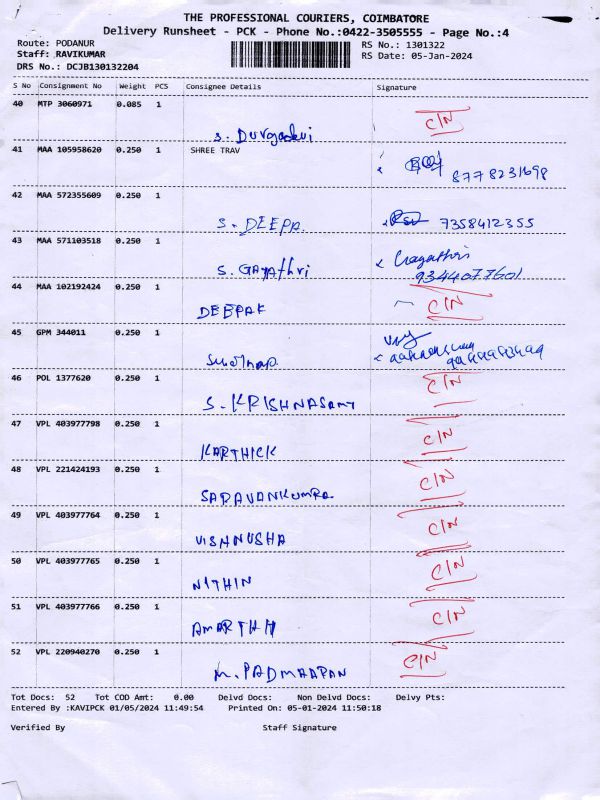 THE PROFESSIONAL COURIERS, COIMBATORE
Delivery Runsheet - PCK - Phone No.:0422-3505555 - Page No.:4
Route: PODANUR RS No.: 1301322
Staff: RAVIKUMAR RS Date: 05-Jan-2024
DRS No.: DCJB130132204
S No Consignment No Weight PCS Consignee Details Signature
40 MTP 3060971 0.085 1 C/N
S. Durgadevi
41 MAA 105958620 0.250 1 SHREE TRAV
8778231698
42 MAA 572355609 0.250 1
S. DEEPA 7358412355
43 MAA 571103518 0.250 1
S. GAYAthri 9344077601
44 MAA 102192424 0.250 1 C/N
DEEPAK
45 GPM 344011 0.250 1
46 POL 1377620 0.250 1 C/N
S. KRISHNASAMY
47 VPL 403977798 0.250 1 C/N
KARTHICK
48 VPL 221424193 0.250 1 C/N
SARAVANKUMRA
49 VPL 403977764 0.250 1 C/N
VISHNUSHA
50 VPL 403977765 0.250 1 C/N
NITHIN
51 VPL 403977766 0.250 1 C/N
AMARTHY
52 VPL 220940270 0.250 1 C/N
M. PADMAAPAN
Tot Docs: 52 Tot COD Amt: 0.00 Delvd Docs: Non Delvd Docs: Delvy Pts:
Entered By :KAVIPCK 01/05/2024 11:49:54 Printed On: 05-01-2024 11:50:18
Verified By Staff Signature